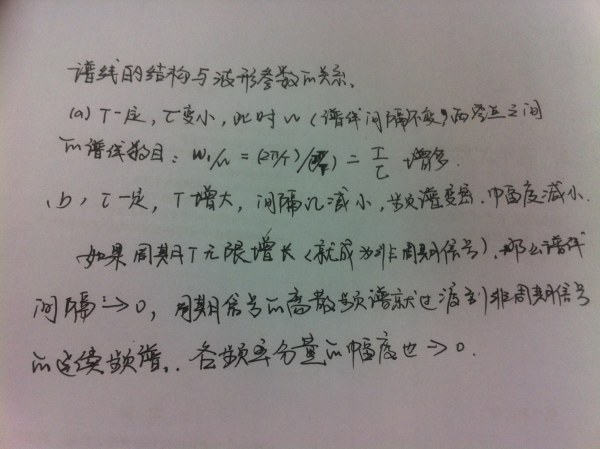 谱线的结构与波形参数的关系.
(a) T一定, τ变小, 此时 (谱线间隔不变) 两零点之间
的谱线数目: W₁/Ω = (2π/τ)/(2π/T) = T/τ 增多.
(b) τ一定, T增大, 间隔Ω减小, 频谱变密. 幅度减小.
如果周期T无限增长 (就成为非周期信号). 那么谱线
间隔→0, 周期信号的离散频谱就过渡到非周期信号
的连续频谱. 各频率分量的幅度也→0.